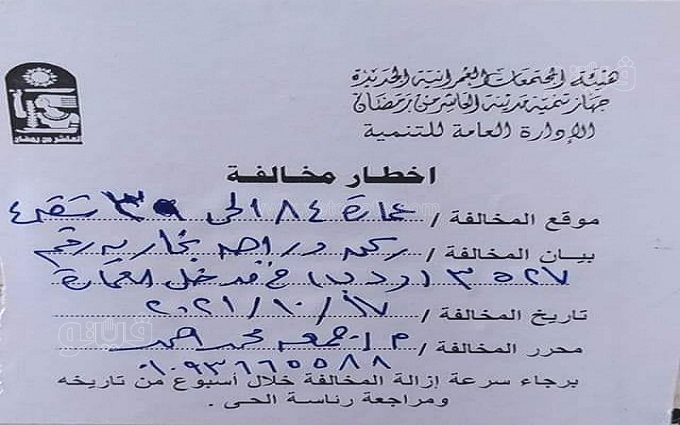 هيئة المجتمعات العمرانية الجديدة
جهاز تنمية مدينة العاشر من رمضان
الإدارة العامة للتنمية
العاشر من رمضان
اخطار مخالفة
موقع المخالفة / عمارة ٨٤ الحى ٣٩ شقة ٤
بيان المخالفة / ركن دراجه بخاريه رقم
٣٥٢٧ (ر د ب) فى مدخل العمارة
تاريخ المخالفة / ١٧ / ١٠ / ٢٠٢١
محرر المخالفة / م / جمعه محمد احمد
٠١٠٩٣٦٦٥٥٨٨
برجاء سرعة إزالة المخالفة خلال أسبوع من تاريخه
ومراجعة رئاسة الحى .
فيتو